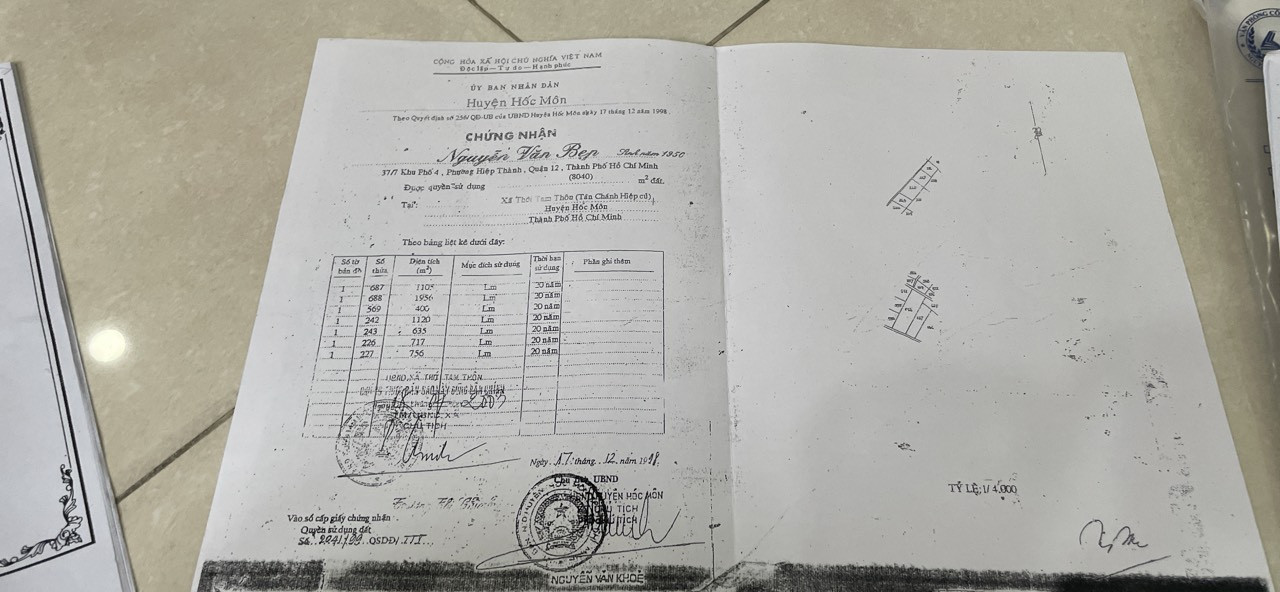 CỘNG HÒA XÃ HỘI CHỦ NGHĨA VIỆT NAM
Độc lập - Tự do - Hạnh phúc
ỦY BAN NHÂN DÂN
Huyện Hốc Môn
Theo Quyết định số 256/ QĐ-UB của UBND Huyện Hốc Môn ngày 17 tháng 12 năm 1998
CHỨNG NHẬN
Nguyễn Văn Bẹp Sinh năm 1950
37/7 Khu Phố 4 , Phường Hiệp Thành , Quận 12 , Thành Phố Hồ Chí Minh
Được quyền sử dụng (8040) m² đất.
Tại: Xã Thới Tam Thôn (Tân Chánh Hiệp cũ)
Huyện Hốc Môn
Thành Phố Hồ Chí Minh
Theo bảng liệt kê dưới đây:
Số tờ bản đồ Số thửa Diện tích (m²) Mục đích sử dụng Thời hạn sử dụng Phần ghi thêm
1 687 1105 Lm 20 năm
1 688 1956 Lm 20 năm
1 569 400 Lm 20 năm
1 242 1120 Lm 20 năm
1 243 635 Lm 20 năm
1 226 717 Lm 20 năm
1 227 756 Lm 20 năm
UBND XÃ THỚI TAM THÔN
2003
CHỦ TỊCH
Ngày 17 tháng 12 năm 1998
UBND
HUYỆN HỐC MÔN
CHỦ TỊCH
Vào sổ cấp giấy chứng nhận
Quyền sử dụng đất
Số QSDĐ/ III
NGUYỄN VĂN KHỎE
TỶ LỆ; 1/ 4.000